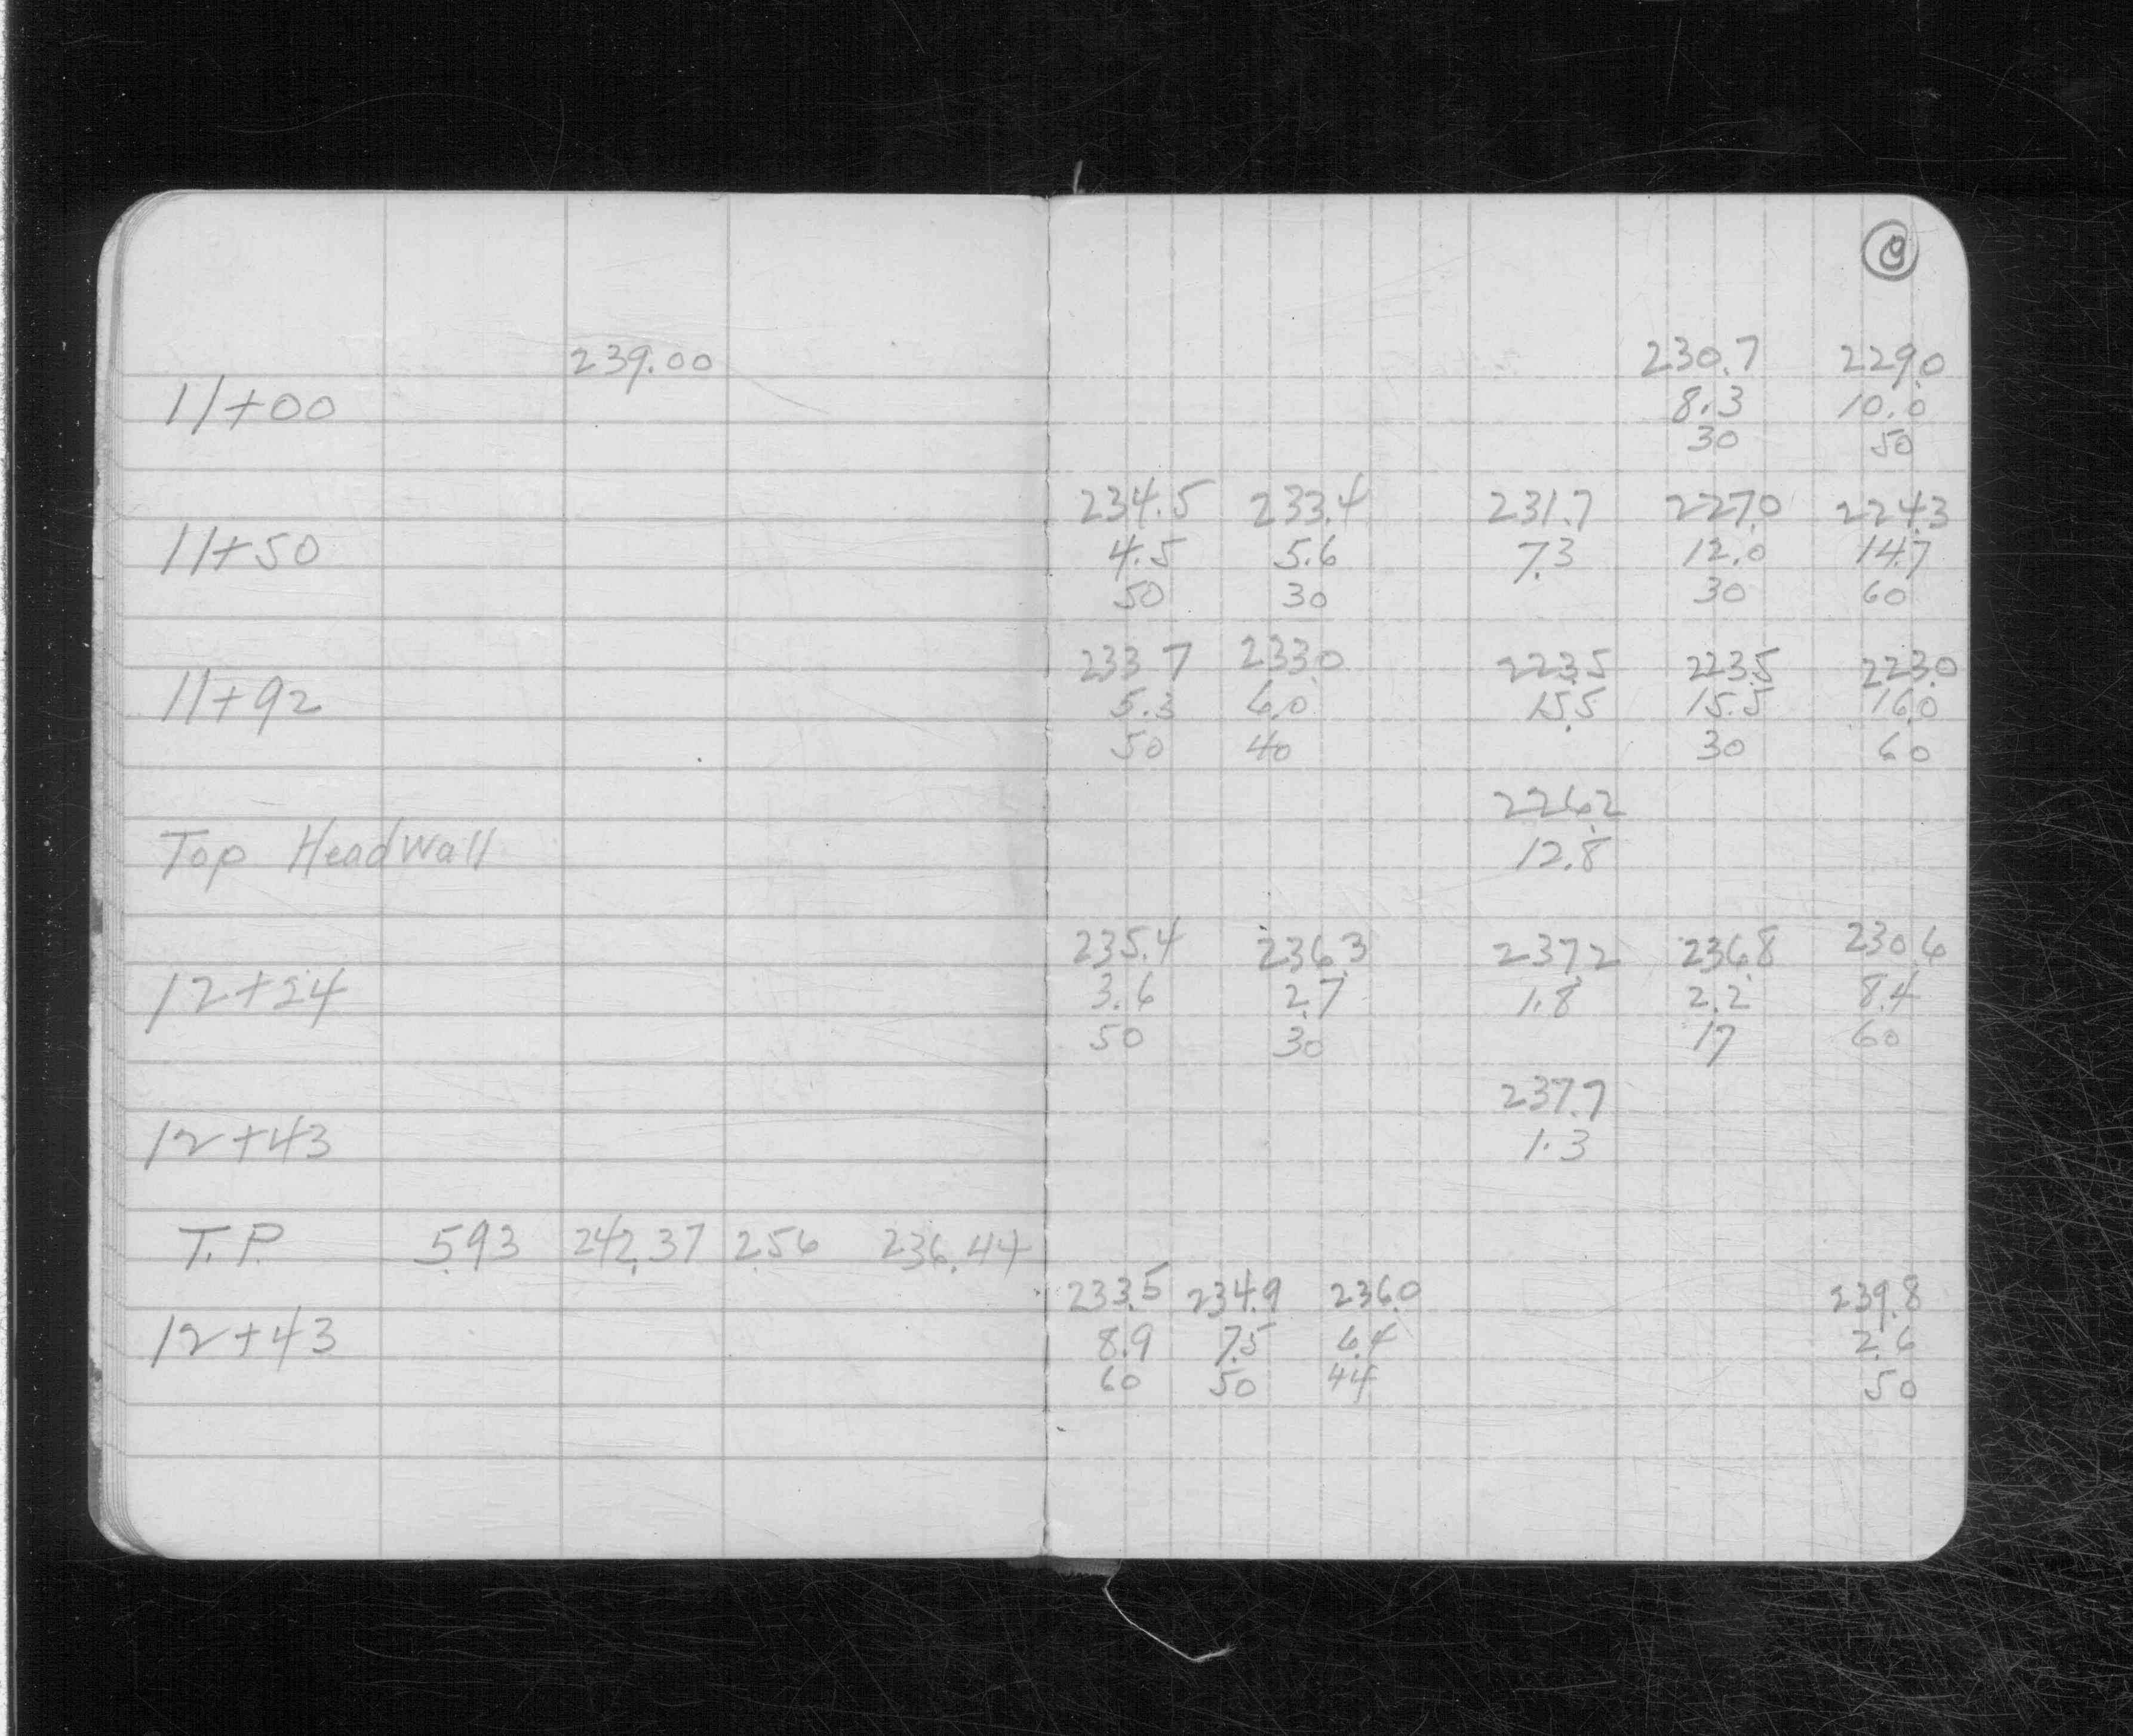 239.00 230.7 229.0
11+00 8.3 10.0
30 50
234.5 233.4 231.7 227.0 224.3
11+50 4.5 5.6 7.3 12.0 14.7
50 30 30 60
233.7 233.0 223.5 223.5 223.0
11+92 5.3 6.0 15.5 15.5 16.0
50 40 30 60
226.2
Top Headwall 12.8
235.4 236.3 237.2 236.8 230.6
12+24 3.6 2.7 1.8 2.2 8.4
50 30 17 60
237.7
12+43 1.3
T.P. 5.93 242.37 2.56 236.44
233.5 234.9 236.0 239.8
12+43 8.9 7.5 6.4 2.6
60 50 44 50